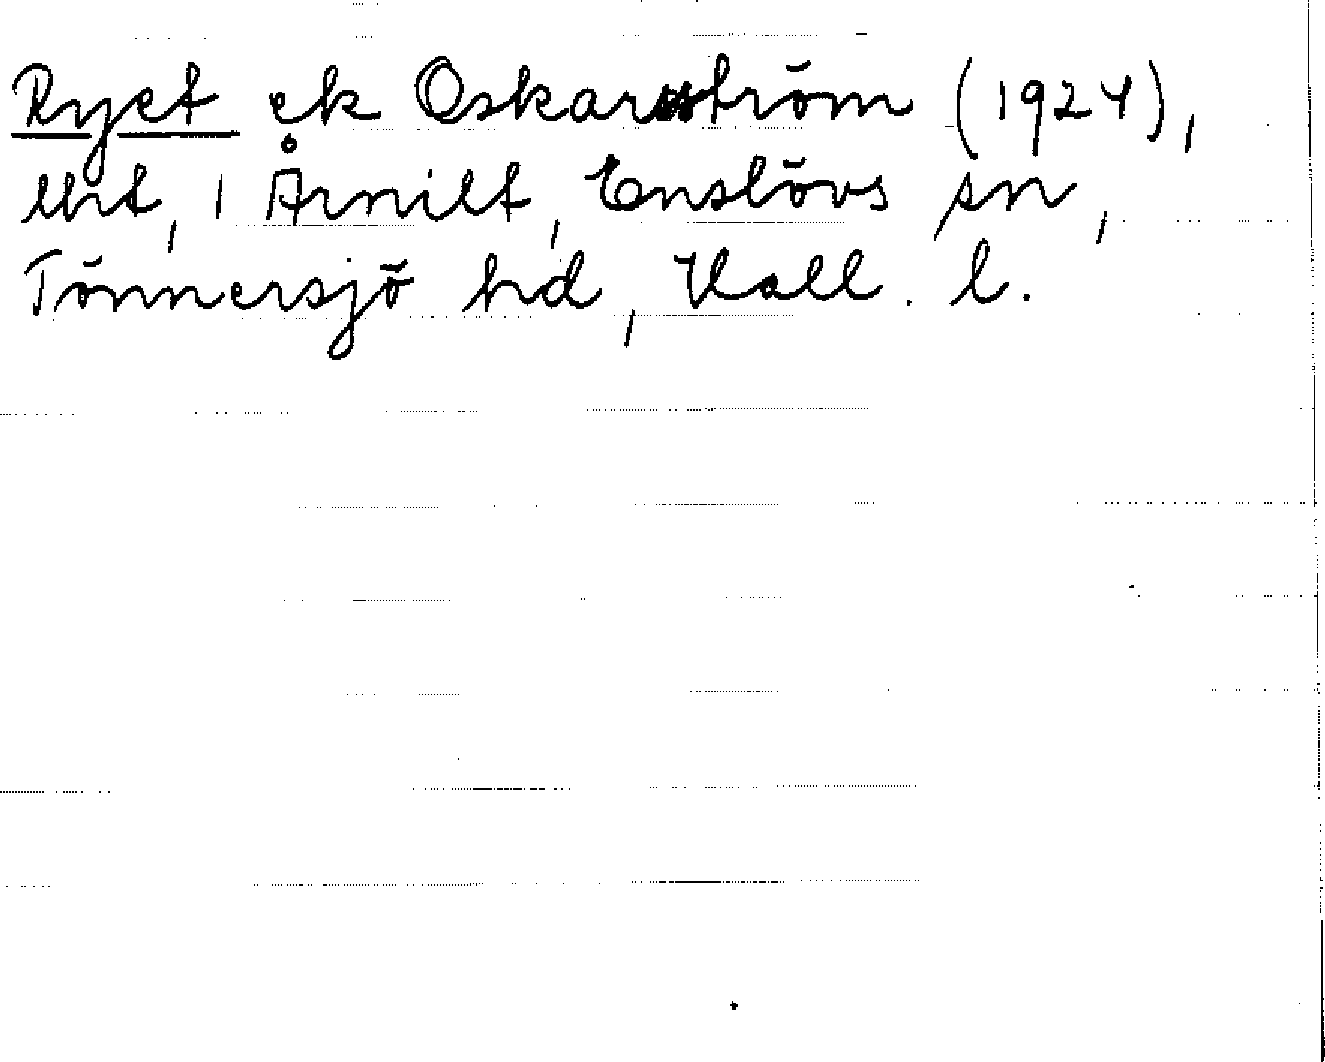 Ryet ek Oskarström (1924),
lht, 1 Årnilt, Enslövs sn,
Tönnersjö hd, Hall. l.